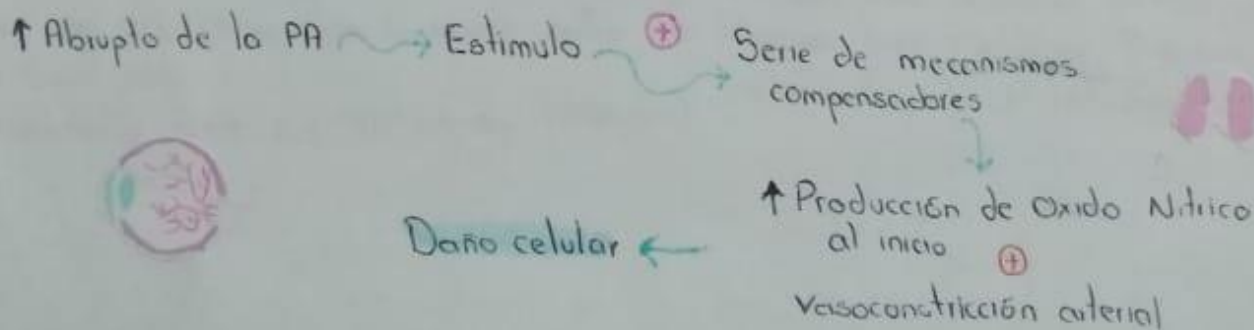 ↑ Abrupto de la PA → Estimulo ⊕ Serie de mecanismos
compensadores
↑ Producción de Oxido Nitrico
al inicio ⊕
Vasoconstricción arterial
Daño celular ←